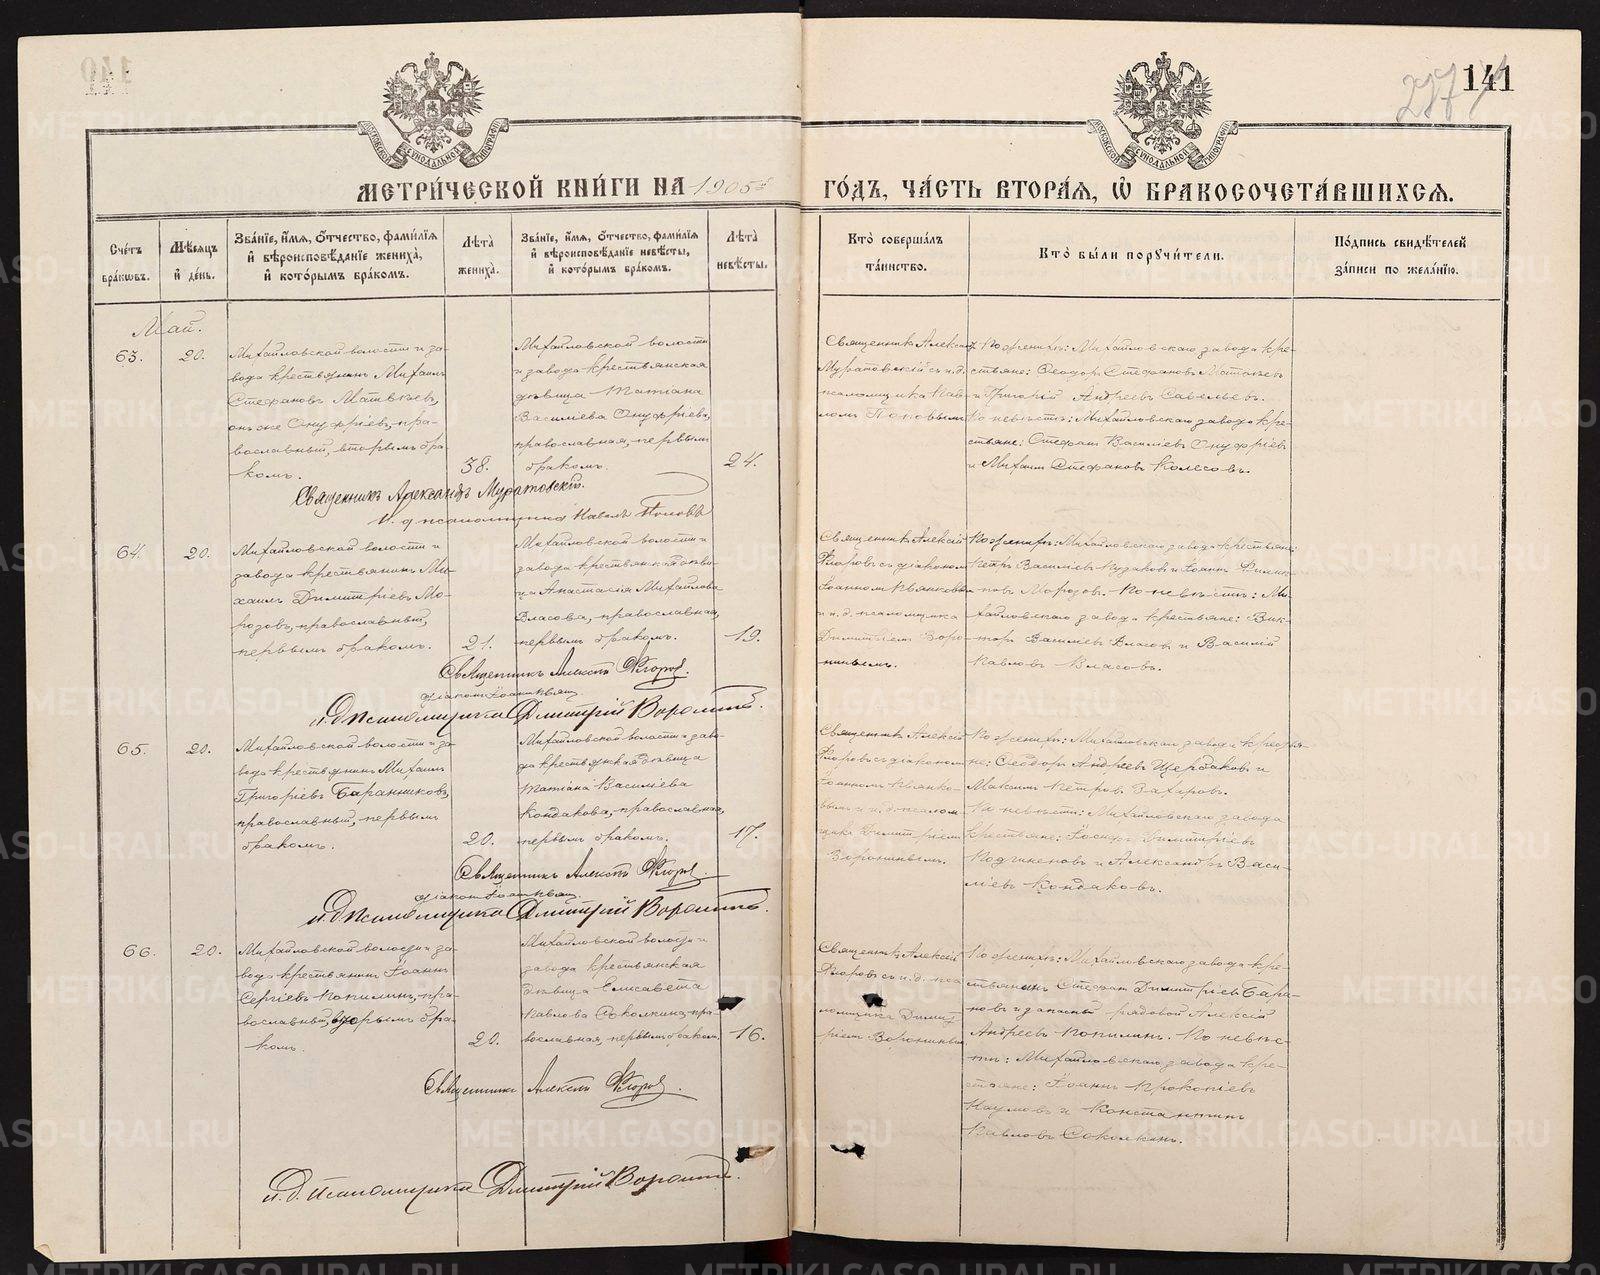 141
МЕТРИ́ЧЕСКОЙ КНИ́ГИ НА 1905й ГО́ДЪ, ЧА́СТЬ ВТОРА́Я, Ѡ БРАКОСОЧЕТА́ВШИХСЯ.
Сче́тъ бра́кωвъ.
Мѣ́сяцъ и́ де́нь.
Зва́нїе, и́мя, о́тчество, фами́лїя и́ вѣроисповѣ́данїе жениха̀, и́ кото́рымъ бра́комъ.
Лѣ́та жениха̀.
Зва́нїе, и́мя, о́тчество, фами́лїя и́ вѣроисповѣ́данїе невѣ́сты, и́ кото́рымъ бра́комъ.
Лѣ́та невѣ́сты.
Кто̀ соверша́лъ та́инство.
Кто̀ бы́ли поручи́тели.
По́дпись свидѣ́телей за́писи по жела́нїю.
Май.
63.
20.
Михайловской волости и за-
вода крестьянинъ Михаилъ
Стефановъ Матвѣевъ,
онъ же Онуфріевъ, пра-
вославный, вторымъ бра-
комъ.
38.
Михайловской волости
и завода крестьянская
дѣвица Татіана
Василіева Онуфріева,
православная, первымъ
бракомъ.
24.
Священникъ Александръ
Муратовскій съ и. д.
псаломщика Пав-
ломъ Поповымъ
По женихѣ: Михайловскаго завода кре-
стьяне: Ѳеодоръ Стефановъ Матвѣевъ
и Григорій Андреевъ Савельевъ.
По невѣстѣ: Михайловскаго завода кре-
стьяне: Стефанъ Василіевъ Онуфріевъ
и Михаилъ Стефановъ Колесовъ.
Священникъ Александръ Муратовскій.
И. д. псаломщика Павелъ Поповъ
64.
20.
Михайловской волости и
завода крестьянинъ Ми-
хаилъ Димитріевъ Мо-
розовъ, православный,
первымъ бракомъ.
21.
Михайловской волости и
завода крестьянская дѣви-
ца Анастасія Михайлова
Власова, православная,
первымъ бракомъ.
19.
Священникъ Алексій
Флоровъ съ діакономъ
Іоанномъ
и и. д. псаломщика
Димитріемъ Воро-
нинымъ.
По женихѣ: Михайловскаго завода крестьяне:
Петръ Василіевъ Кузаковъ и Іоаннъ Филип-
повъ Морозовъ. По невѣстѣ: Ми-
хайловскаго завода крестьяне: Вик-
торъ Василіевъ Власовъ и Василій
Павловъ Власовъ.
Священникъ Алексій Флоровъ.
діаконъ Іоаннъ
и. д. псаломщика Димитрій Воронинъ.
65.
20.
Михайловской волости и за-
вода крестьянинъ Михаилъ
Григоріевъ Баранниковъ,
православный, первымъ
бракомъ.
20.
Михайловской волости и заво-
да крестьянская дѣвица
Татіана Василіева
Кондакова, православная,
первымъ бракомъ.
17.
Священникъ Алексій
Флоровъ съ діакономъ
Іоанномъ
и и. д. псалом-
щика Димитріемъ
Воронинымъ.
По женихѣ: Михайловскаго завода крестья-
не: Ѳеодоръ Андреевъ Щербаковъ и
Максимъ Петровъ Захаровъ.
По невѣстѣ: Михайловскаго завода
крестьяне: Іосифъ Димитріевъ
и Александръ Васи-
ліевъ Кондаковъ.
Священникъ Алексій Флоровъ.
діаконъ Іоаннъ
и. д. псаломщика Димитрій Воронинъ.
66.
20.
Михайловской волости и за-
вода крестьянинъ Іоаннъ
Сергіевъ Копилинъ, пра-
вославный, вторымъ бра-
комъ.
20.
Михайловской волости и
завода крестьянская
дѣвица Елисавета
Павлова Соколкина, пра-
вославная, первымъ бракомъ.
16.
Священникъ Алексій
Флоровъ съ и. д. пса-
ломщика Димит-
ріемъ Воронинымъ
По женихѣ: Михайловскаго завода кре-
стьянинъ Стефанъ Димитріевъ Бара-
новъ и запасный рядовой Алексій
Андреевъ Копилинъ. По невѣс-
тѣ: Михайловскаго завода кре-
стьяне: Іоаннъ Прокопіевъ
Наумовъ и Константинъ
Павловъ Соколкинъ.
Священникъ Алексій Флоровъ.
и. д. псаломщика Димитрій Воронинъ.
METRIKI.GASO-URAL.RU